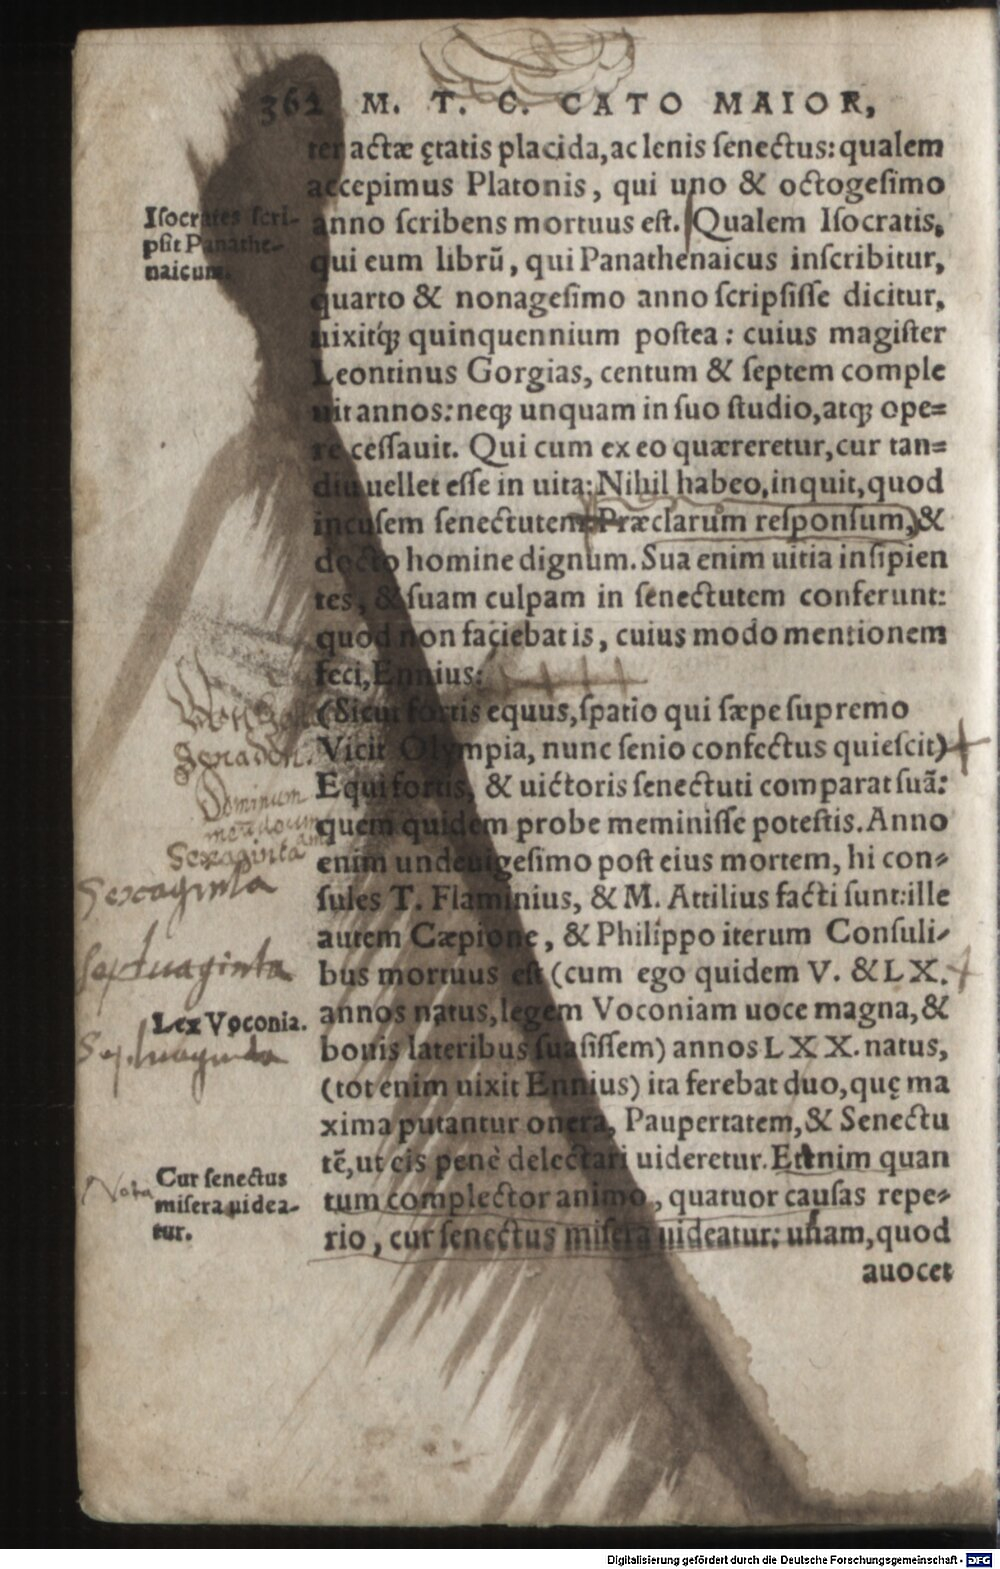 362 M. T. C. CATO MAIOR,
ter actæ ętatis placida, ac lenis ſenectus: qualem
accepimus Platonis, qui uno & octogeſimo
anno ſcribens mortuus eſt. Qualem Iſocratis,
qui eum librū, qui Panathenaicus inſcribitur,
quarto & nonageſimo anno ſcripſiſſe dicitur,
uixitq́ꝫ quinquennium poſtea: cuius magiſter
Leontinus Gorgias, centum & ſeptem comple
uit annos: neqꝫ unquam in ſuo ſtudio, atqꝫ ope=
re ceſſauit. Qui cum ex eo quæreretur, cur tan=
diu uellet eſſe in uita: Nihil habeo, inquit, quod
incuſem ſenectutem: Præclarum reſponſum, &
docto homine dignum. Sua enim uitia inſipien
tes, & ſuam culpam in ſenectutem conferunt:
quod non faciebat is, cuius modo mentionem
feci, Ennius:
(Sicut fortis equus, ſpatio qui ſæpe ſupremo
Vicit Olympia, nunc ſenio confectus quieſcit)
Equi fortis, & uictoris ſenectuti comparat ſuā:
quem quidem probe meminiſſe poteſtis. Anno
enim undeuigeſimo poſt eius mortem, hi con-
ſules T. Flaminius, & M. Attilius facti ſunt: ille
autem Cæpione, & Philippo iterum Conſuli-
bus mortuus eſt (cum ego quidem V. & LX.
annos natus, legem Voconiam uoce magna, &
bonis lateribus ſuaſiſſem) annos LXX. natus,
(tot enim uixit Ennius) ita ferebat duo, quę ma
xima putantur onera, Paupertatem, & Senectu
tē, ut eis penè delectari uideretur. Etenim quan
tum complector animo, quatuor cauſas repe-
rio, cur ſenectus miſera uideatur: unam, quod
auocet
Iſocrates ſcri-
pſit Panathe-
naicum.
Dominum
Sexaginta
Sexaginta
septuaginta
Lex Voconia.
Septuaginta
Nota
Cur ſenectus
miſera uidea-
tur.
Digitalisierung gefördert durch die Deutsche Forschungsgemeinschaft - DFG